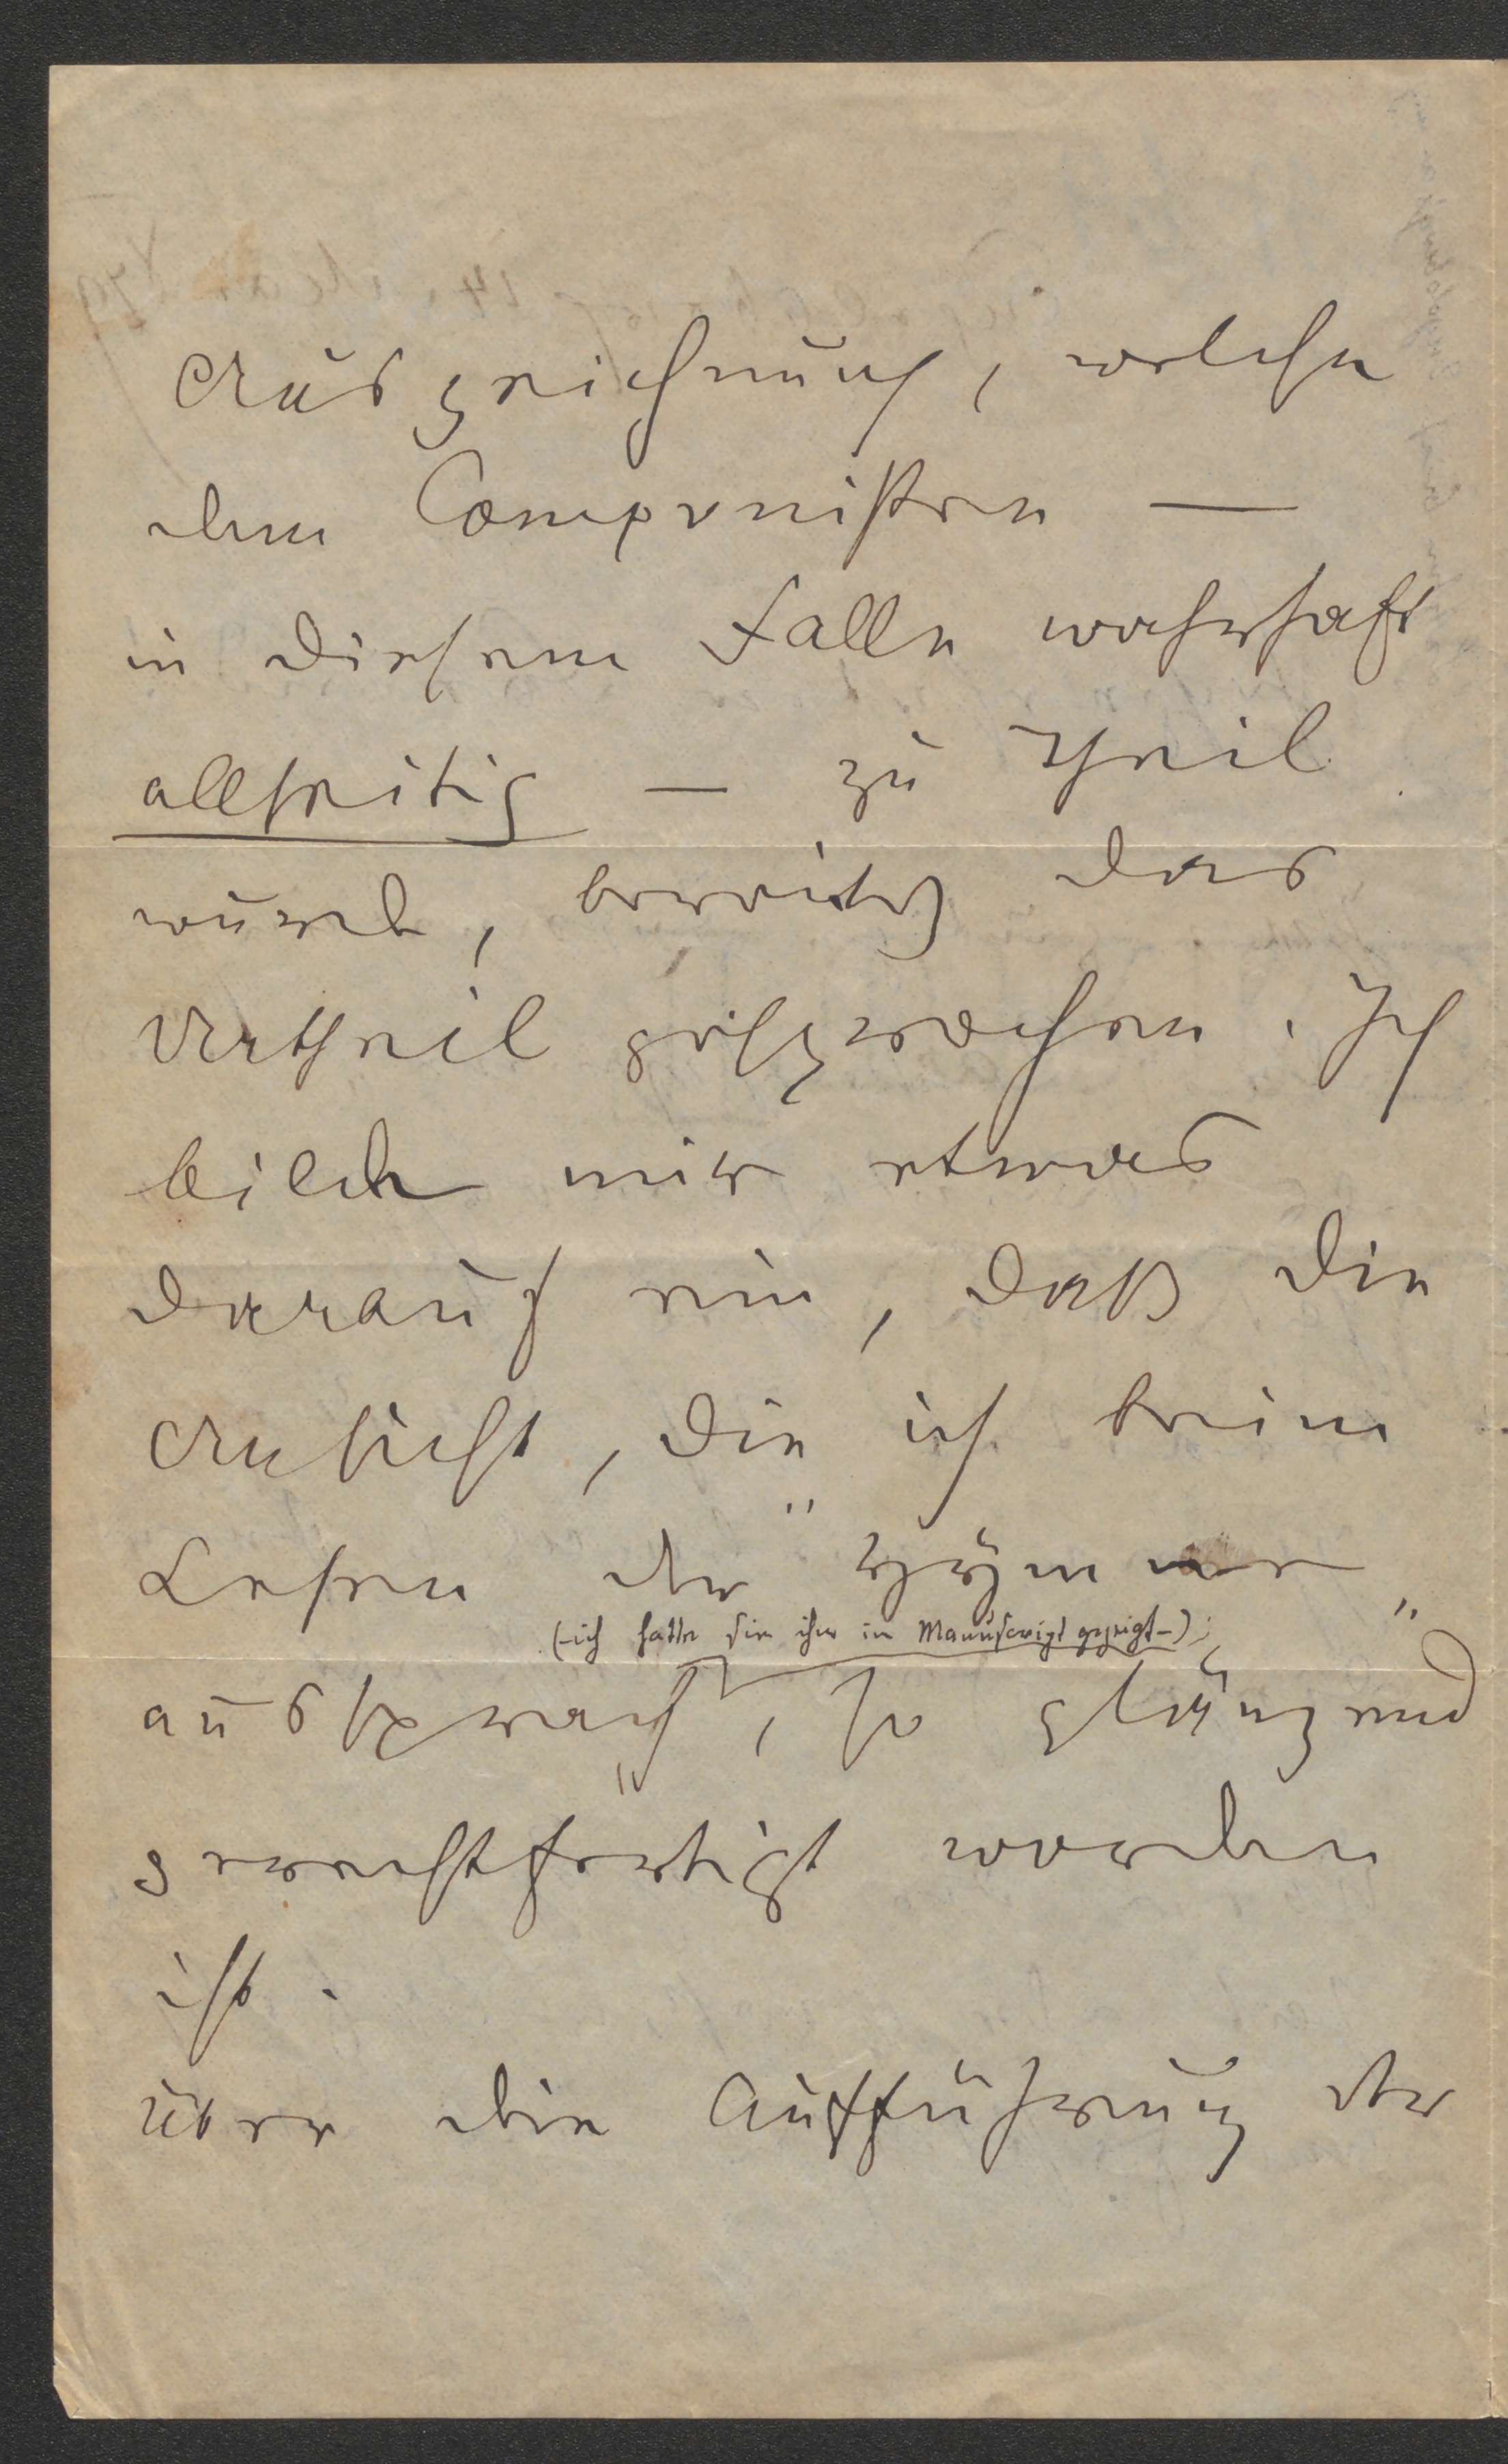 Auszeichnung, welche
dem Componisten —
in diesem Falle wahrhaft
allseitig — zu Theil
wurde, bereits das
Urtheil gesprochen. Ich
bilde mir etwas
darauf ein, daß die
Ansicht, die ich beim
Lesen der "Hymne"
(-ich hatte sie ihr in Manuscript gezeigt-)
aussprach, so glänzend
gerechtfertigt worden
ist.
Über die Aufführung der